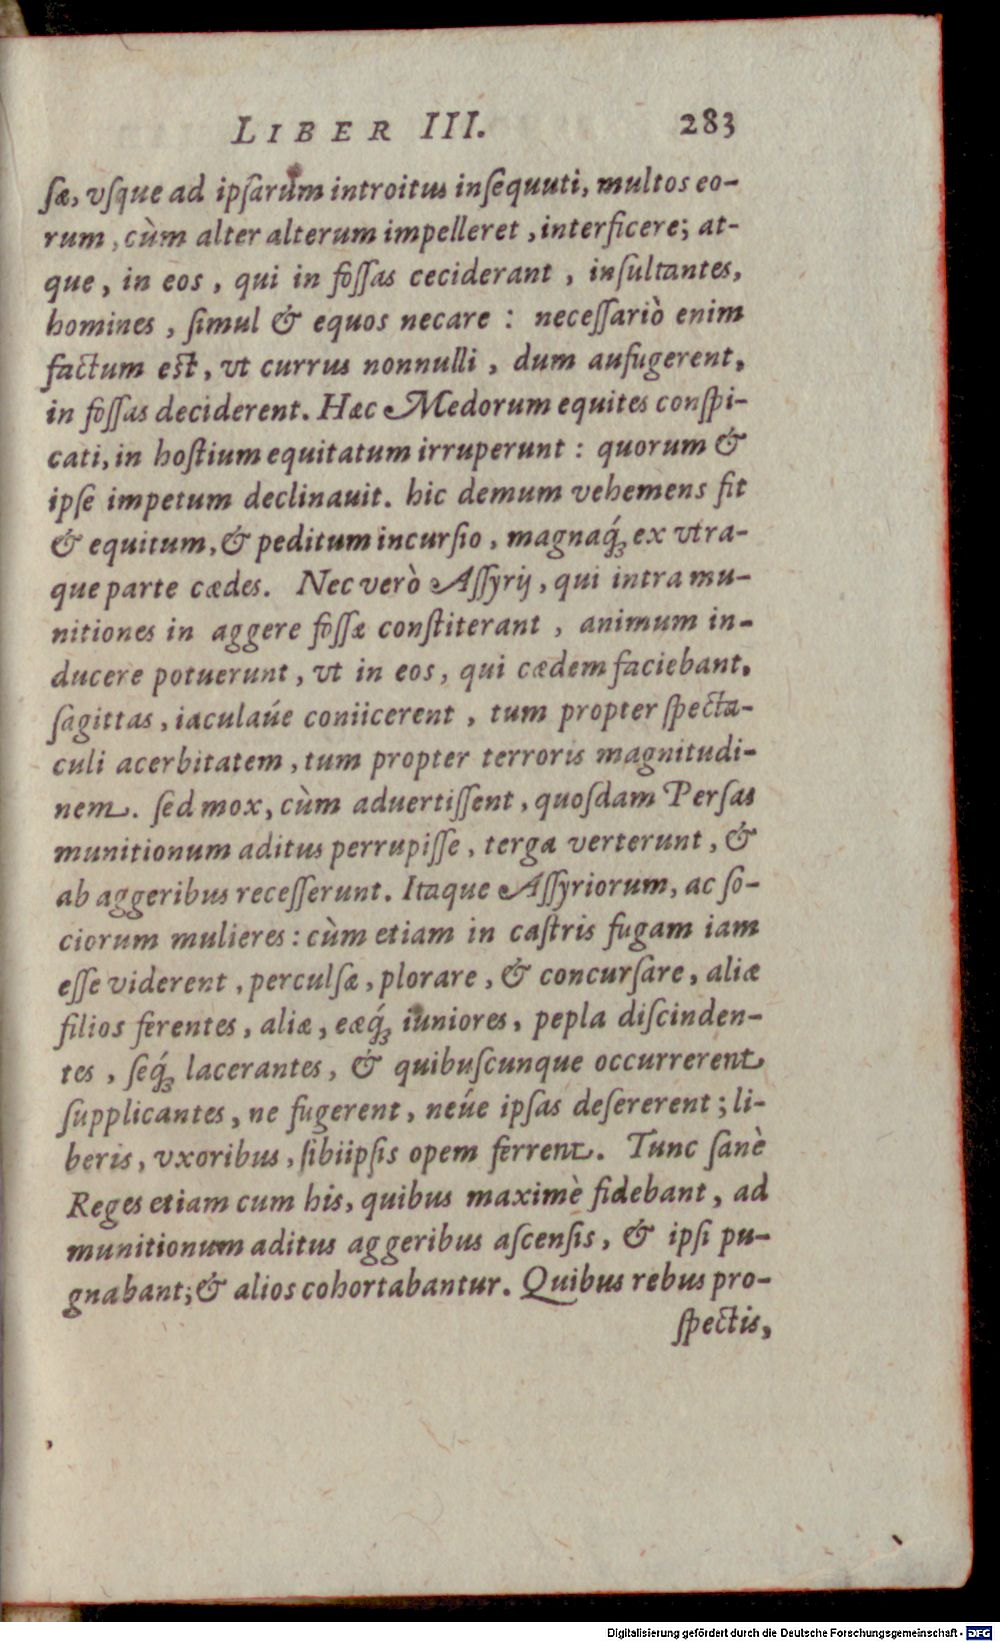 LIBER III. 283
ſæ, vſque ad ipſarum introitus inſequuti, multos eo-
rum, cùm alter alterum impelleret, interficere; at-
que, in eos, qui in foſſas ceciderant, inſultantes,
homines, ſimul & equos necare: neceſſariò enim
factum eſt, vt currus nonnulli, dum aufugerent,
in foſſas deciderent. Hæc Medorum equites conſpi-
cati, in hoſtium equitatum irruperunt: quorum &
ipſe impetum declinauit. hic demum vehemens fit
& equitum, & peditum incurſio, magnaq́ꝫ ex vtra-
que parte cædes. Nec verò Aſſyrij, qui intra mu-
nitiones in aggere foſſæ conſtiterant, animum in-
ducere potuerunt, vt in eos, qui cædem faciebant,
ſagittas, iaculaúe coniicerent, tum propter ſpecta-
culi acerbitatem, tum propter terroris magnitudi-
nem. ſed mox, cùm aduertiſſent, quoſdam Perſas
munitionum aditus perrupiſſe, terga verterunt, &
ab aggeribus receſſerunt. Itaque Aſſyriorum, ac ſo-
ciorum mulieres: cùm etiam in caſtris fugam iam
eſſe viderent, perculſæ, plorare, & concurſare, aliæ
filios ferentes, aliæ, eæq́ꝫ iuniores, pepla diſcinden-
tes, ſeq́ꝫ lacerantes, & quibuſcunque occurrerent
ſupplicantes, ne fugerent, neúe ipſas deſererent; li-
beris, vxoribus, ſibiipſis opem ferrent. Tunc ſanè
Reges etiam cum his, quibus maximè fidebant, ad
munitionum aditus aggeribus aſcenſis, & ipſi pu-
gnabant; & alios cohortabantur. Quibus rebus pro-
ſpectis,
Digitalisierung gefördert durch die Deutsche Forschungsgemeinschaft - DFG